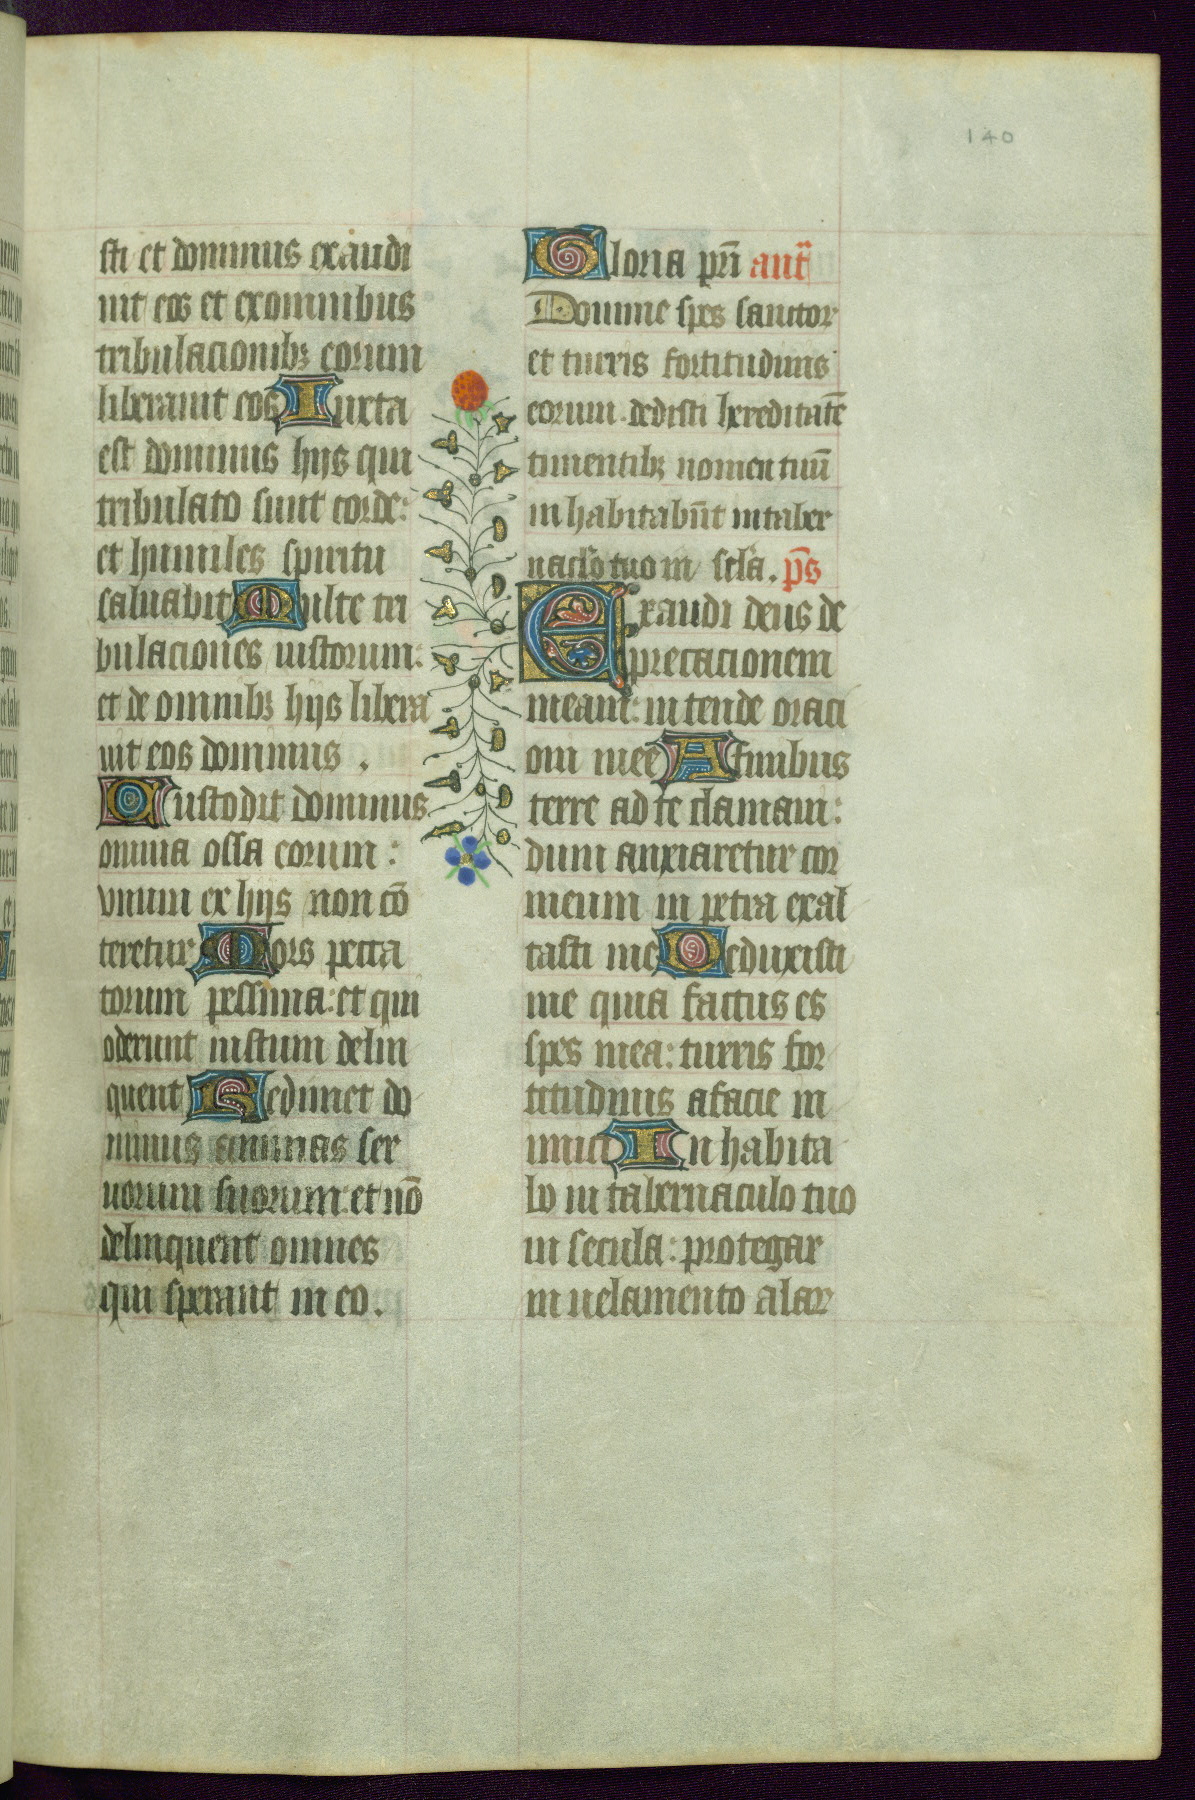 140
sti et dominus exaudi
uit eos et ex omnibus
tribulacionibꝫ eorum
liberauit eos Iuxta
est dominus hijs qui
tribulato sunt corde:
et humiles spiritu
saluabit Multe tri
bulaciones iustorum:
et de omnibꝫ hijs libera
uit eos dominus .
Custodit dominus
omnia ossa eorum :
vnum ex hijs non cō
teretur Mors pecca
torum pessima: et qui
oderunt iustum delin
quent Redimet do
minus animas ser
uorum suorum: et nō
delinquent omnes
qui sperant in eo.
Gloria pr̄i ant̄
Domine spes sanctor
et turris fortitudinis
eorum dedisti hereditatē
timentibꝫ nomen tuū
inhabitabūt in taber
nac̄lo tuo in sc̄la. ps̄
Exaudi deus de
precacionem
meam: intende oraci
oni mee A finibus
terre ad te clamaui:
dum anxiaretur cor
meum in petra exal
tasti me Deduxisti
me quia factus es
spes mea: turris for
titudinis a facie in
imici In habita
bo in tabernaculo tuo
in secula: protegar
in uelamento alar